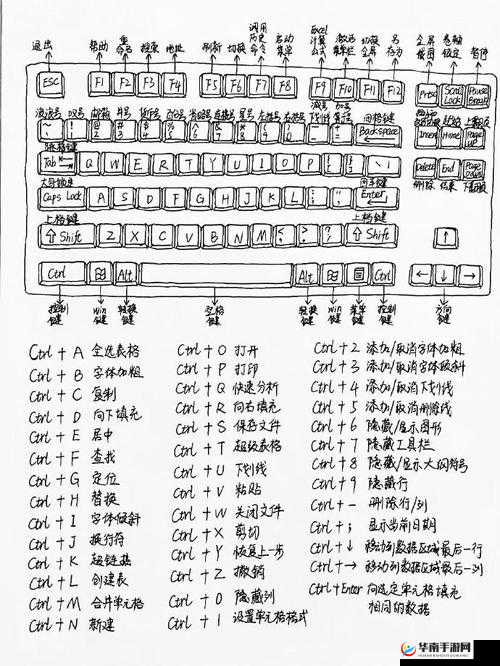 退出 帮助 重命名 搜索 地址 刷新 切换 调用历史命令 启动菜单 Excel计算公式 激活菜单栏 切换全屏 另存为 全屏截图 卷轴锁定 暂停
ESC F1 F2 F3 F4 F5 F6 F7 F8 F9 F10 F11 F12 Prtsc Scroll Lock Pause Break
波浪号 叹号 井号 减号下划线 加号等号 回格键
~ ! @ # 3 $ 4 % 5 Backspace Insert Home Page up
Tab Q W E R T Y U I O P { [ } ] \ Delete End Page Down
删除 结束 下翻页
大写锁定 回车键
Caps Lock A S D F G H J K L : ; " ' Enter
上档键 上档键
Shift Z X C V B N M < , > . ? / Shift ↑
Ctrl Alt Alt Ctrl ← ↓ →
控制键 win键 转换键 空格键 转换键 win键 菜单键 控制键 方向键
Ctrl + A 全选表格
Ctrl + B 字体加粗
Ctrl + C 复制
Ctrl + D 向下填充
Ctrl + E 居中
Ctrl + F 查找
Ctrl + G 定位
Ctrl + H 替换
Ctrl + I 字体倾斜
Ctrl + J 换行符
Ctrl + K 超链接
Ctrl + L 创建表
Ctrl + M 合并单元格
Ctrl + N 新建
Ctrl + O 打开
Ctrl + P 打印
Ctrl + Q 快速分析
Ctrl + R 向右填充
Ctrl + S 保存文件
Ctrl + T 超级表格
Ctrl + U 下划线
Ctrl + V 粘贴
Ctrl + W 关闭文件
Ctrl + X 剪切
Ctrl + Y 恢复上一步
Ctrl + Z 撤销
Ctrl + 0 隐藏列
Ctrl + 1 设置单元格格式
Ctrl + 2 添加/取消字体加粗
Ctrl + 3 添加/取消字体倾斜
Ctrl + 4 添加/取消下划线
Ctrl + 5 添加/取消删除线
Ctrl + 6 隐藏/显示图形
Ctrl + 7 隐藏工具栏
Ctrl + 8 隐藏/显示大纲符号
Ctrl + 9 隐藏行
Ctrl + - 删除行/列
Ctrl + ; 显示当前日期
Ctrl + ↓ 移动到数据区域最后一行
Ctrl + → 移动到数据区域最后一列
Ctrl+Enter 向选定单元格填充
相同的数据
华南手游网